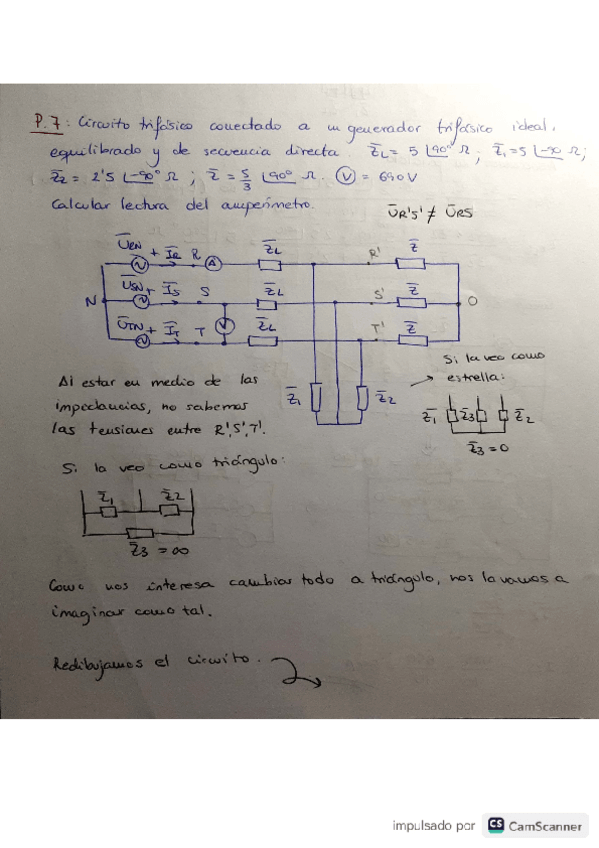 P.7: Circuito trifásico conectado a un generador trifásico ideal,
equilibrado y de secuencia directa. Z̄L = 5 ∠90° Ω; Z̄1 = 5 ∠-90 Ω;
Z̄2 = 2'5 ∠-90° Ω; Z̄ = 5/3 ∠90° Ω. V = 690 V
Calcular lectura del amperímetro.
ŪR'S' ≠ ŪRS
ŪRN + ĪR R A Z̄L R' Z̄
ŪSN + ĪS S Z̄L S' Z̄
N O
ŪTN + ĪT T V Z̄L T' Z̄
Z̄1 Z̄2
Al estar en medio de las
impedancias, no sabemos
las tensiones entre R',S',T'.
Si la veo como
estrella:
Z̄1 Z̄3 Z̄2
Z̄3 = 0
Si la veo como triángulo:
Z̄1 Z̄2
Z̄3 = ∞
Como nos interesa cambiar todo a triángulo, nos la vamos a
imaginar como tal.
Redibujamos el circuito.
impulsado por CS CamScanner